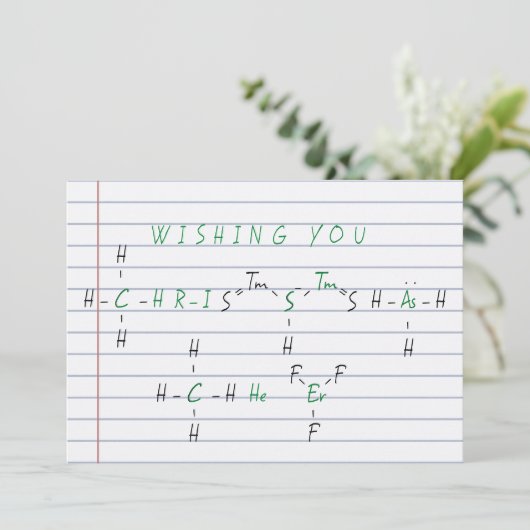 WISHING YOU
H
Tm Tm
H - C - H R - I S S S H - Äs - H
H H H
H
F F
H - C - H He Er
H F